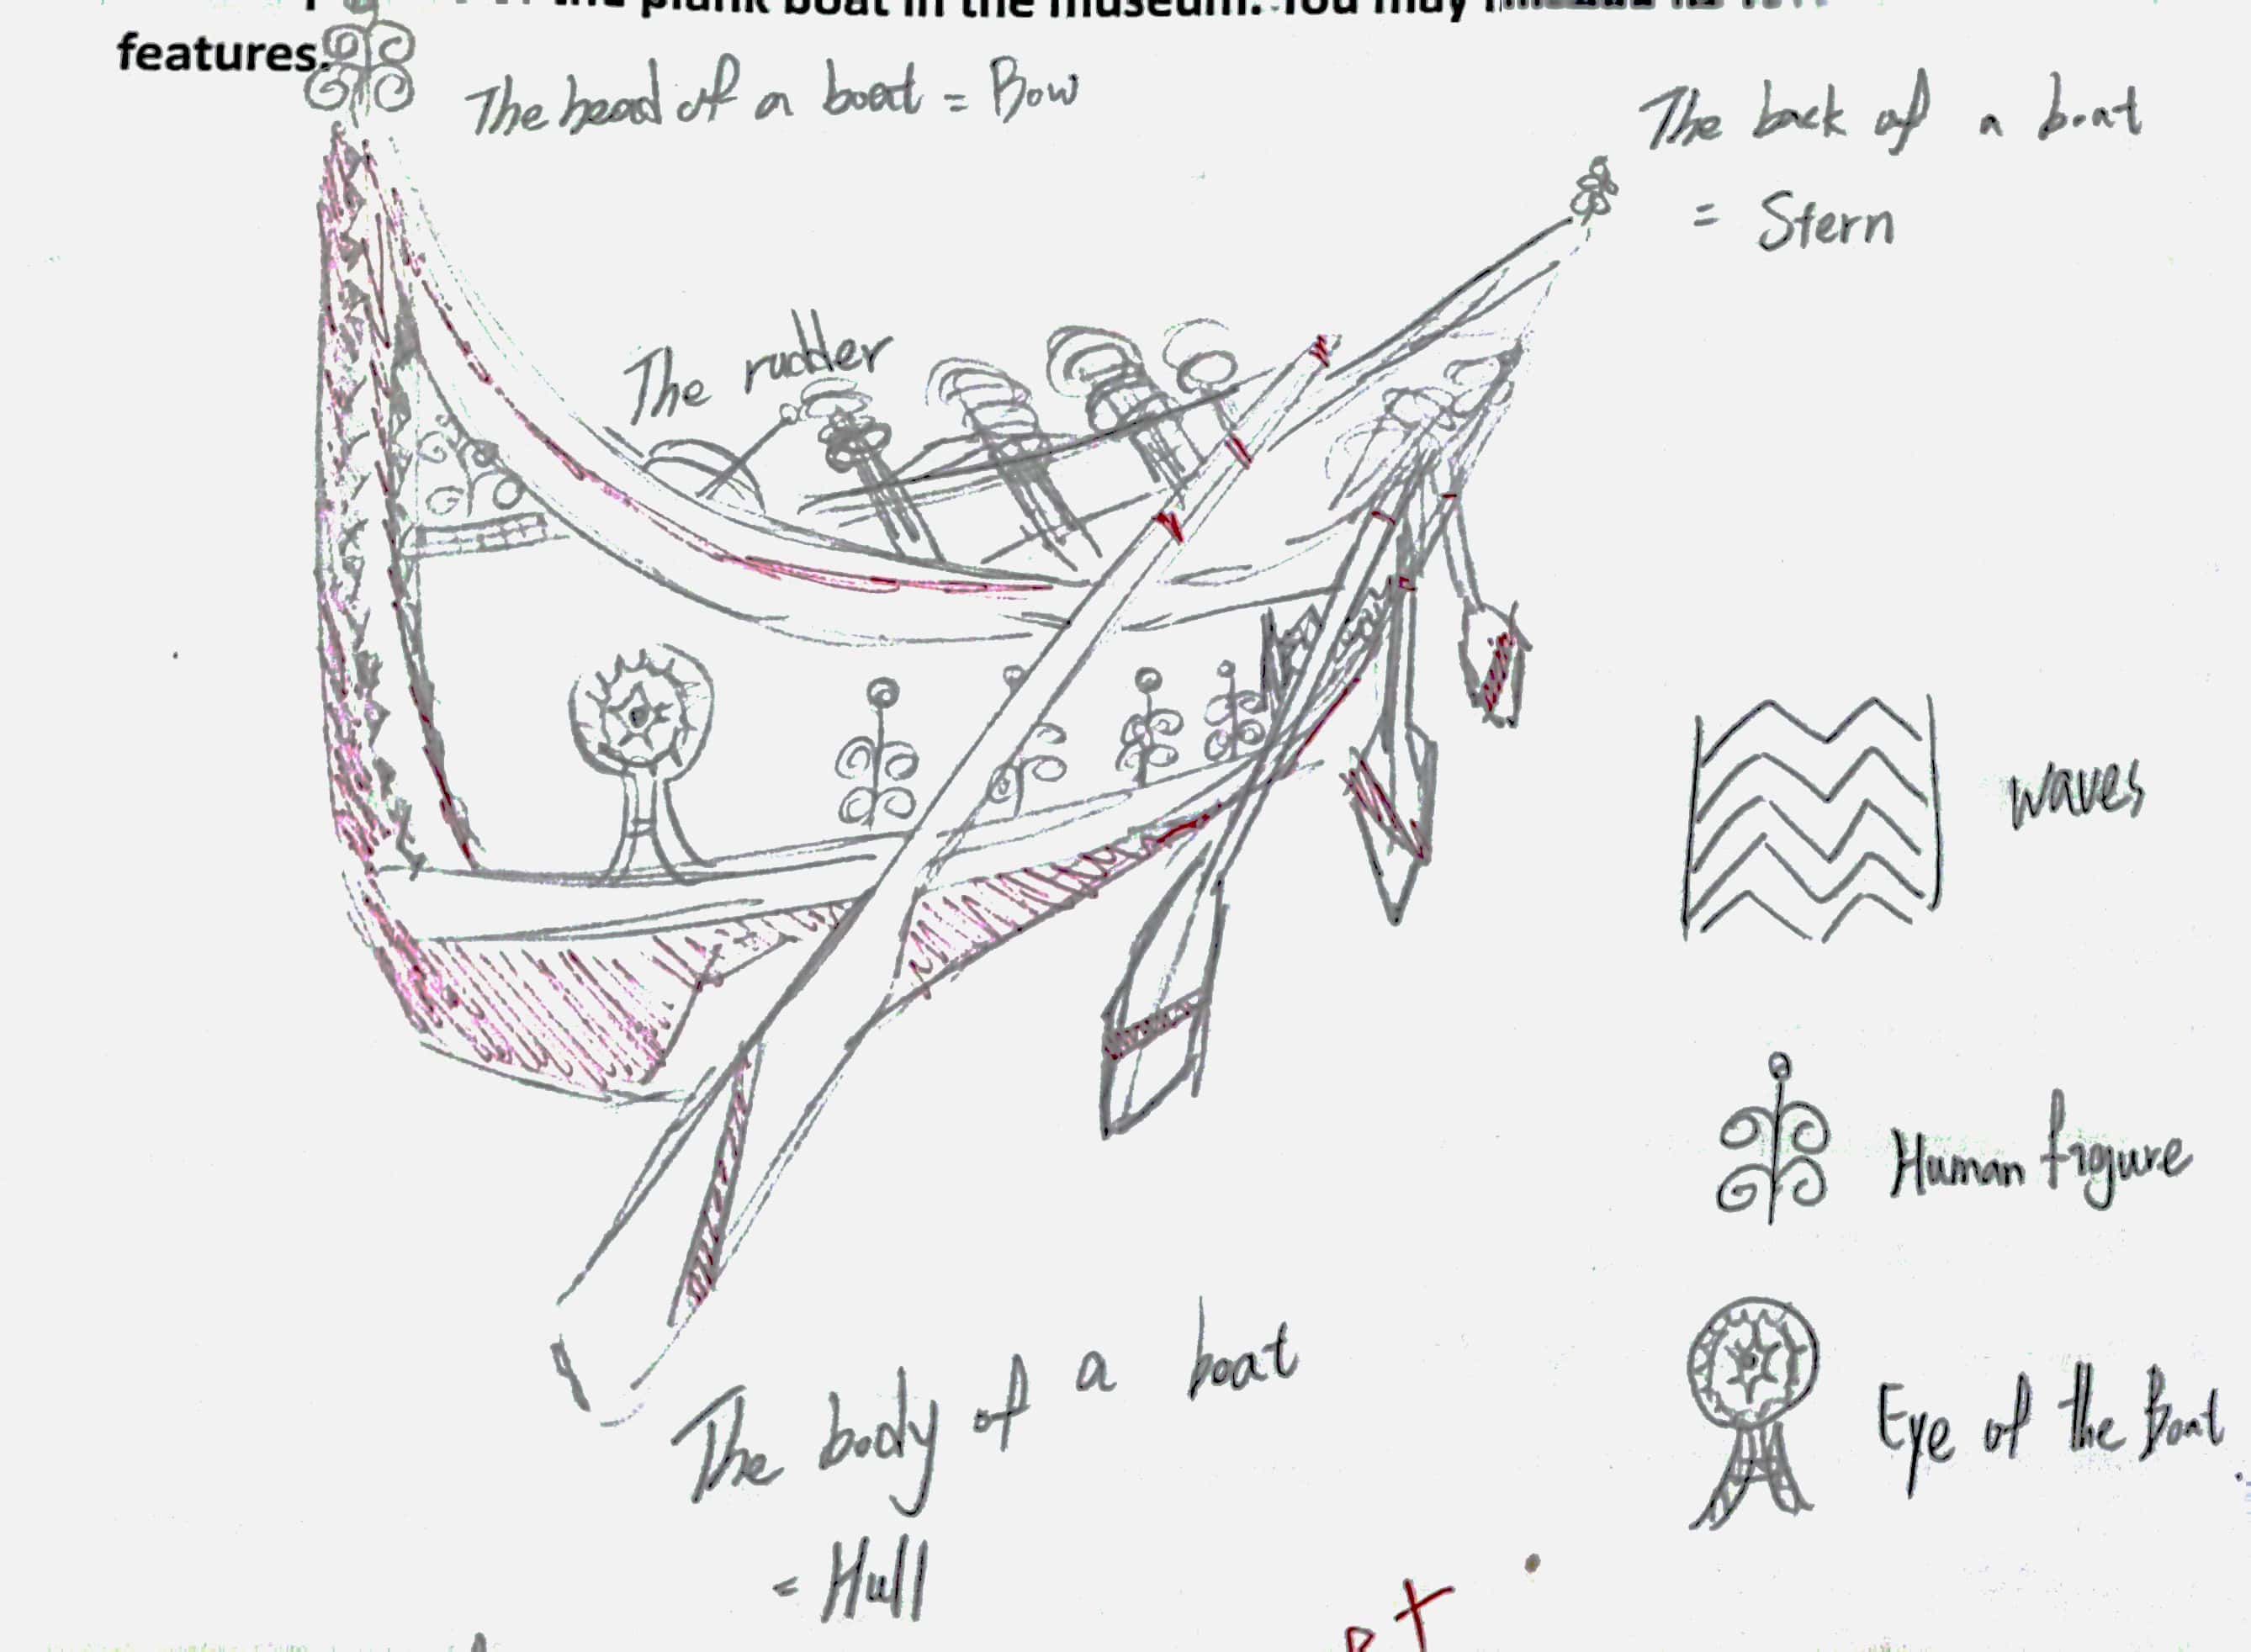 the plank boat in the museum. You may
features.
The head of a boat = Bow
The back of a boat
= Stern
The rudder
waves
Human figure
Eye of the Boat
The body of a boat
= Hull